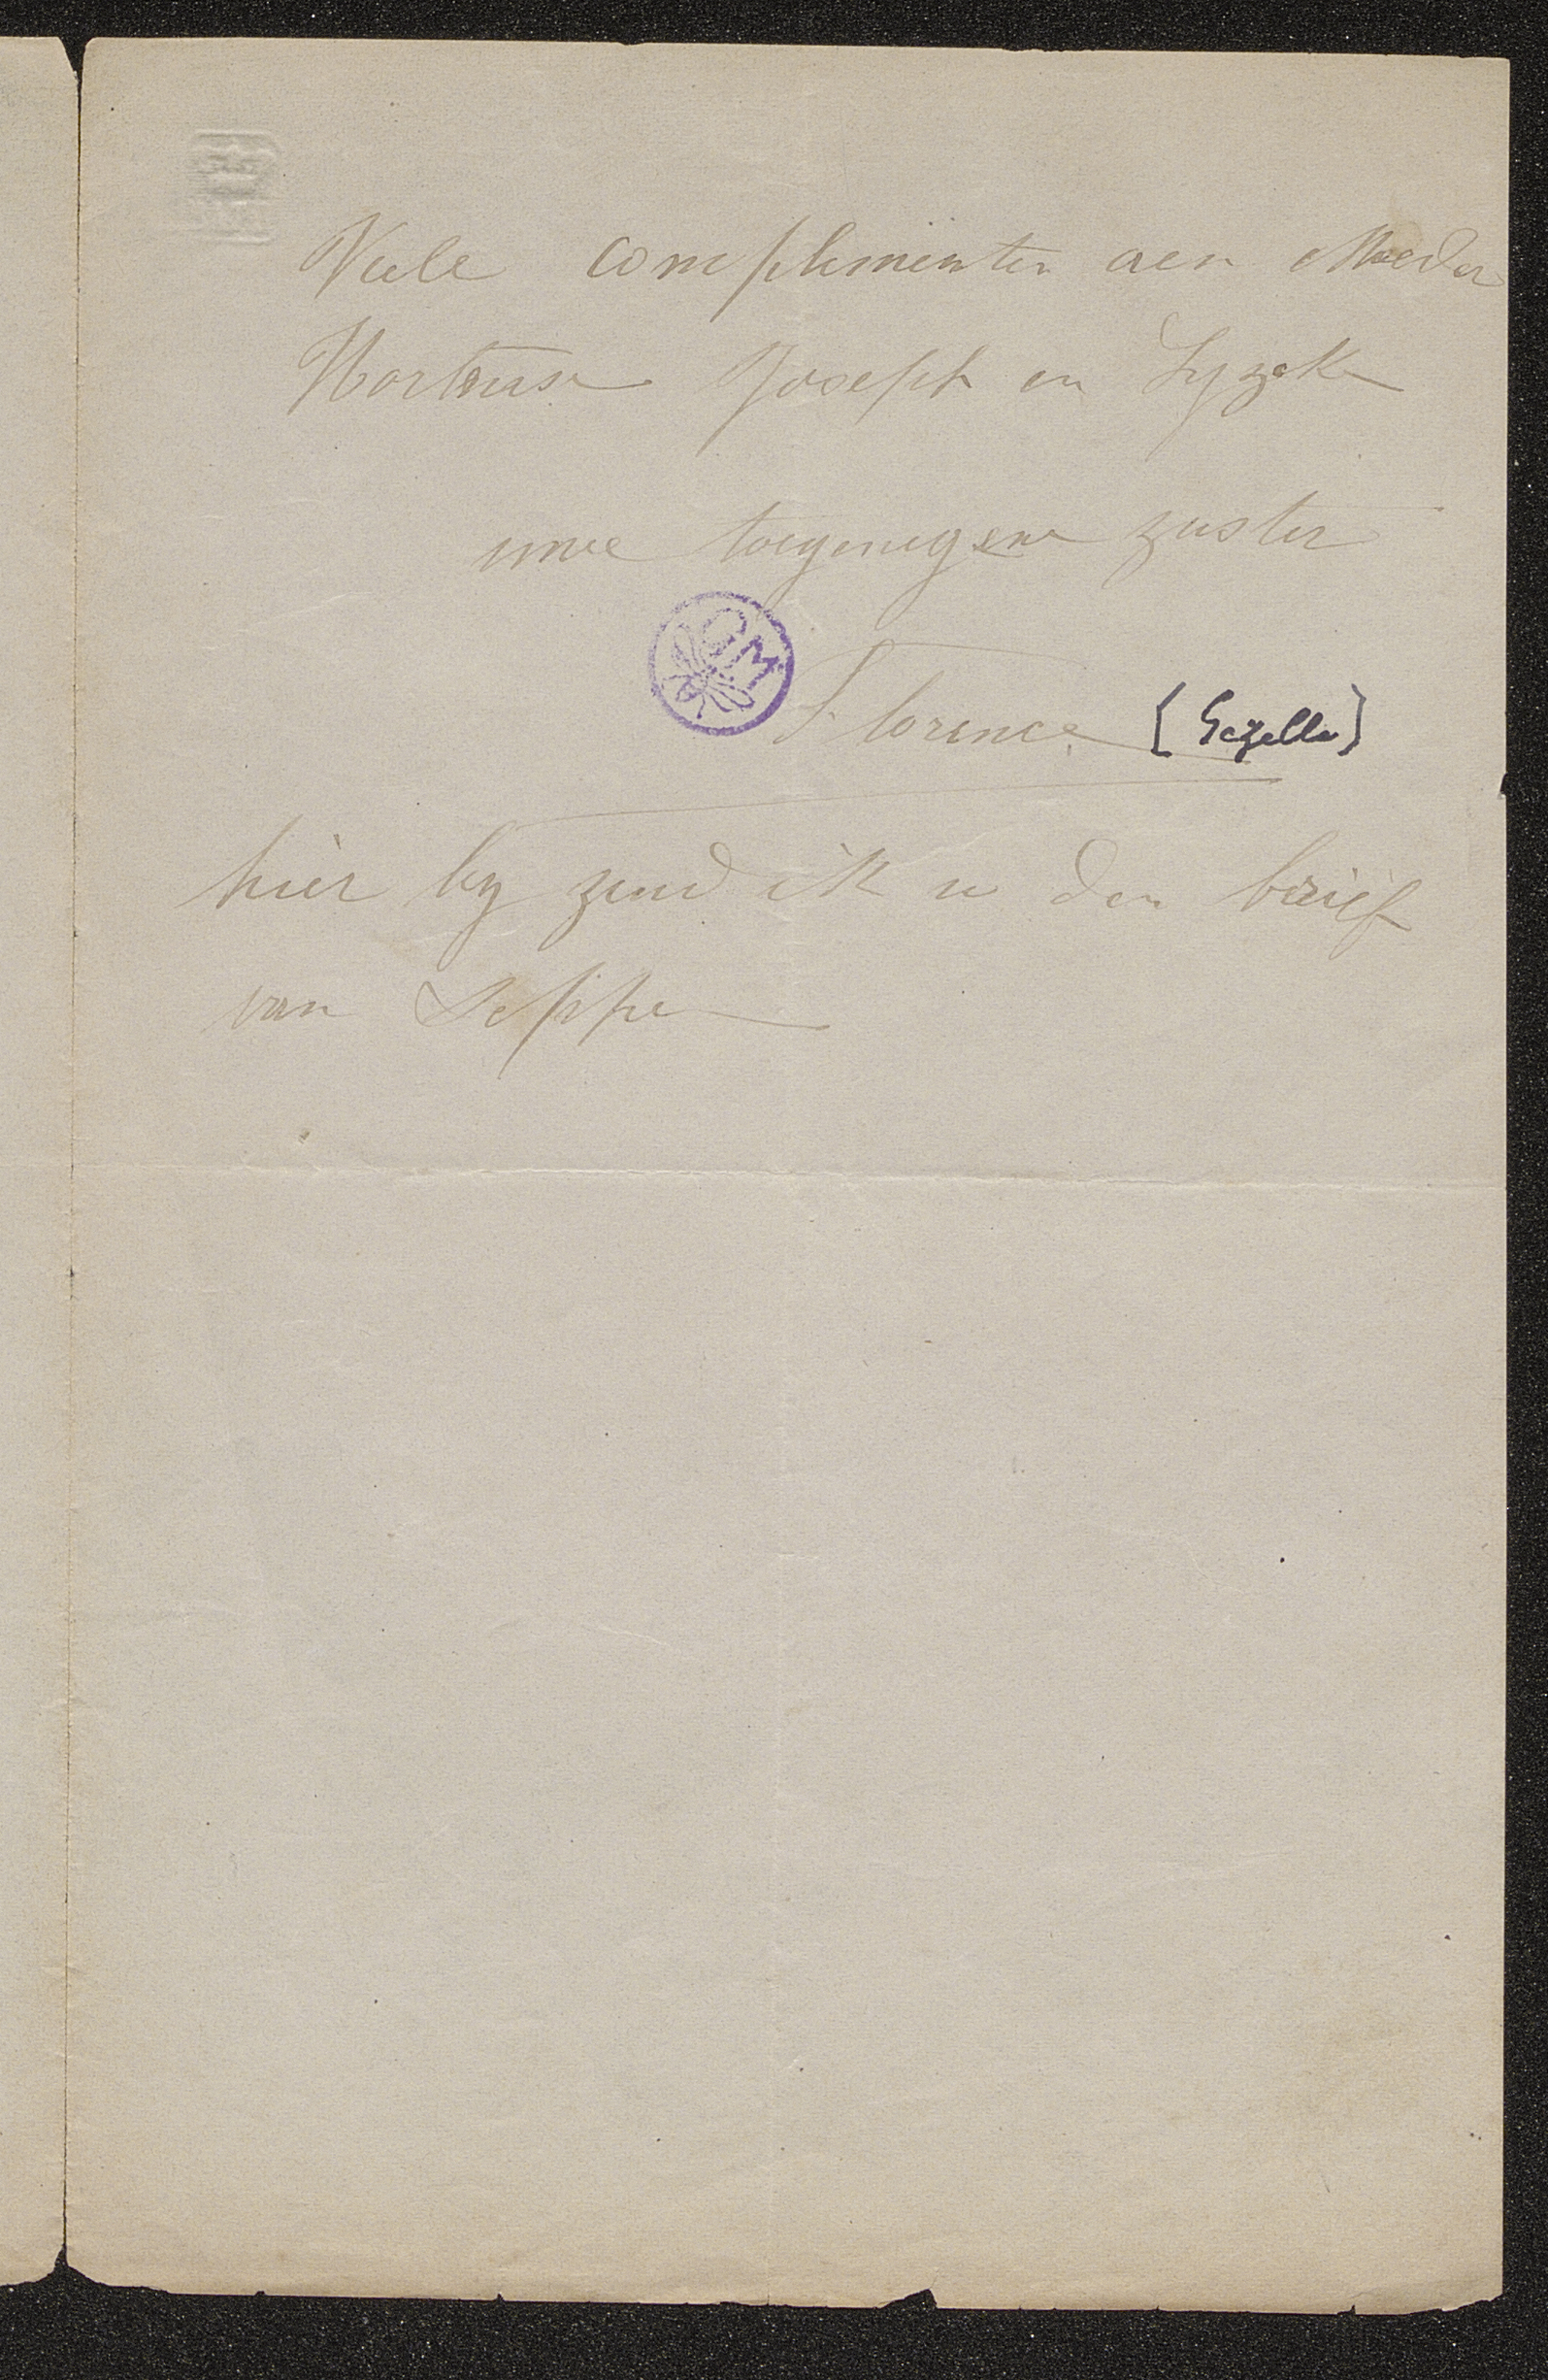 Veele complimenten aen Moeder
Hortense Joseph en Lyzske
uwe toegenegene zuster
GM
Florence [Gezelle]
hier by zend ik u den brief
van Seppe